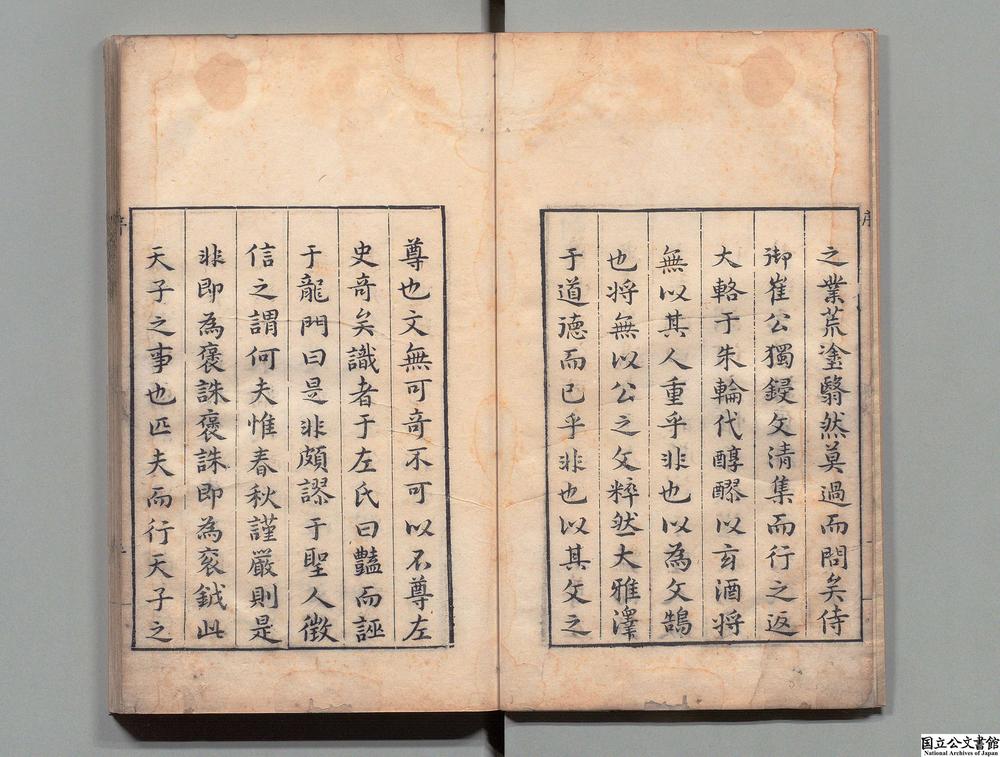 之業荒塗翳然莫過而問矣侍
御崔公獨鋟文清集而行之返
大輅于朱輪代醇醪以玄酒將
無以其人重乎非也以為文鵠
也將無以公之文粹然大雅澤
于道德而已乎非也以其文之
尊也文無可奇不可以不尊左
史奇矣識者于左氏曰豔而誣
于龍門曰是非頗謬于聖人徵
信之謂何夫惟春秋謹嚴則是
非即為褒誅褒誅即為衮鉞此
天子之事也匹夫而行天子之
序
国立公文書館
National Archives of Japan